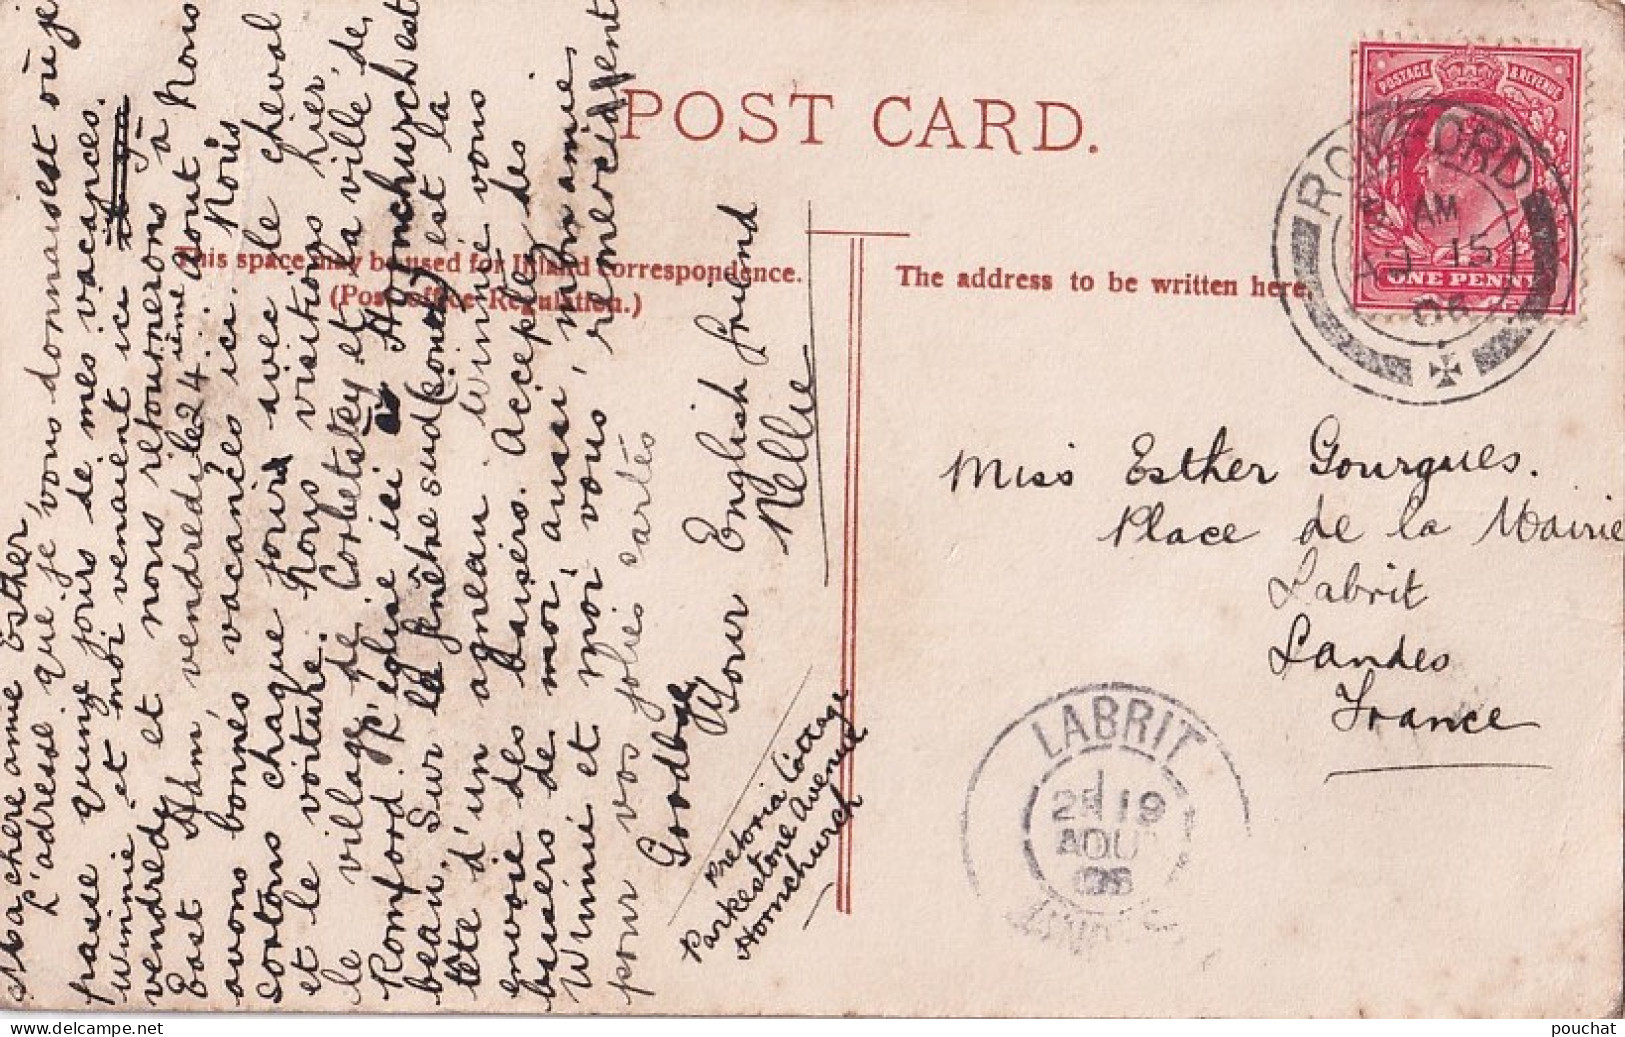 Ma chere amie Esther,
L'adresse que je vous donnais est où je
passe quinze jours de mes vacances.
Winnie et moi venaient ici
vendredy et nous retournerons à
East Ham, vendredi le 24ième dont nous
avons bonnes vacances ici. Nous
sortons chaque jour avec le cheval
et le voiture. Nous visitions hier,
le village de Corbetstey et la ville de
Romford. L'église ici à Hornchurch est
beau. Sur la fenêtre sud est la
tête d'un agneau. Winnie vous
envoie des baisers. Acceptez des
baisers de moi aussi, mon amie,
Winnie et moi vous remercient
pour vos jolies cartes
Goodbye
Your English friend
Nellie
Pretoria Cottage
Parkestone Avenue
Hornchurch
POST CARD.
This space may be used for Inland Correspondence.
(Post-office Regulation.)
The address to be written here.
POSTAGE & REVENUE
ONE PENNY
ROMFORD
AM
15
06
Miss Esther Gourgues.
Place de la Mairie
Labrit
Landes
France
LABRIT
2E 19
AOU
06
pouchat